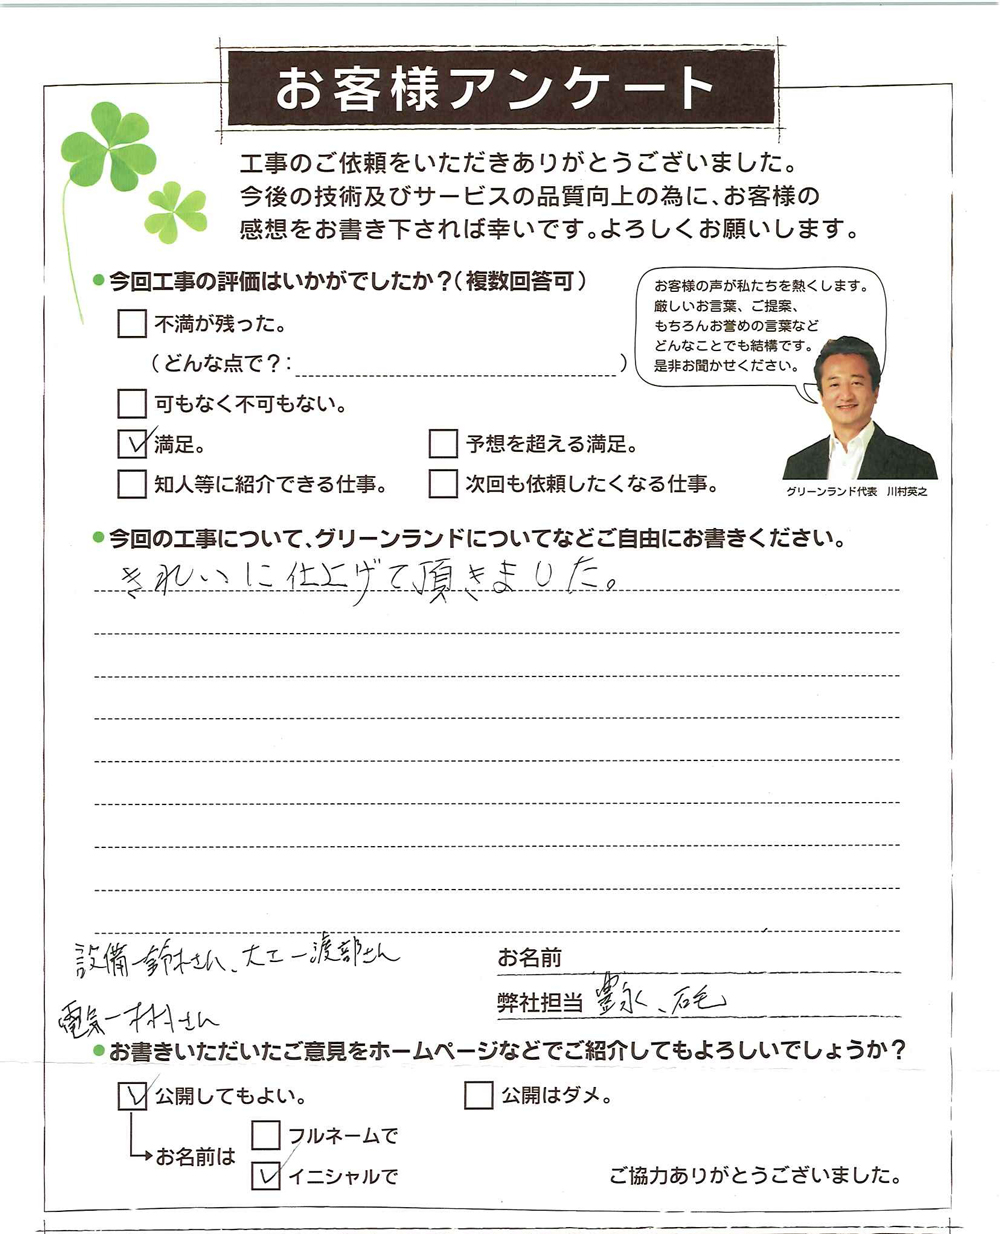 お客様アンケート
工事のご依頼をいただきありがとうございました。
今後の技術及びサービスの品質向上の為に、お客様の
感想をお書き下されば幸いです。よろしくお願いします。
●今回工事の評価はいかがでしたか？（複数回答可）
不満が残った。
（どんな点で？：　　　）
可もなく不可もない。
満足。
予想を超える満足。
知人等に紹介できる仕事。
次回も依頼したくなる仕事。
お客様の声が私たちを熱くします。
厳しいお言葉、ご提案、
もちろんお誉めの言葉など
どんなことでも結構です。
是非お聞かせください。
グリーンランド代表　川村英之
●今回の工事について、グリーンランドについてなどご自由にお書きください。
きれいに仕上げて頂きました。
設備ー鈴木さん、大工ー渡部さん
電気ー木村さん
お名前
弊社担当 豊永、石毛
●お書きいただいたご意見をホームページなどでご紹介してもよろしいでしょうか？
公開してもよい。
公開はダメ。
お名前は
フルネームで
イニシャルで
ご協力ありがとうございました。